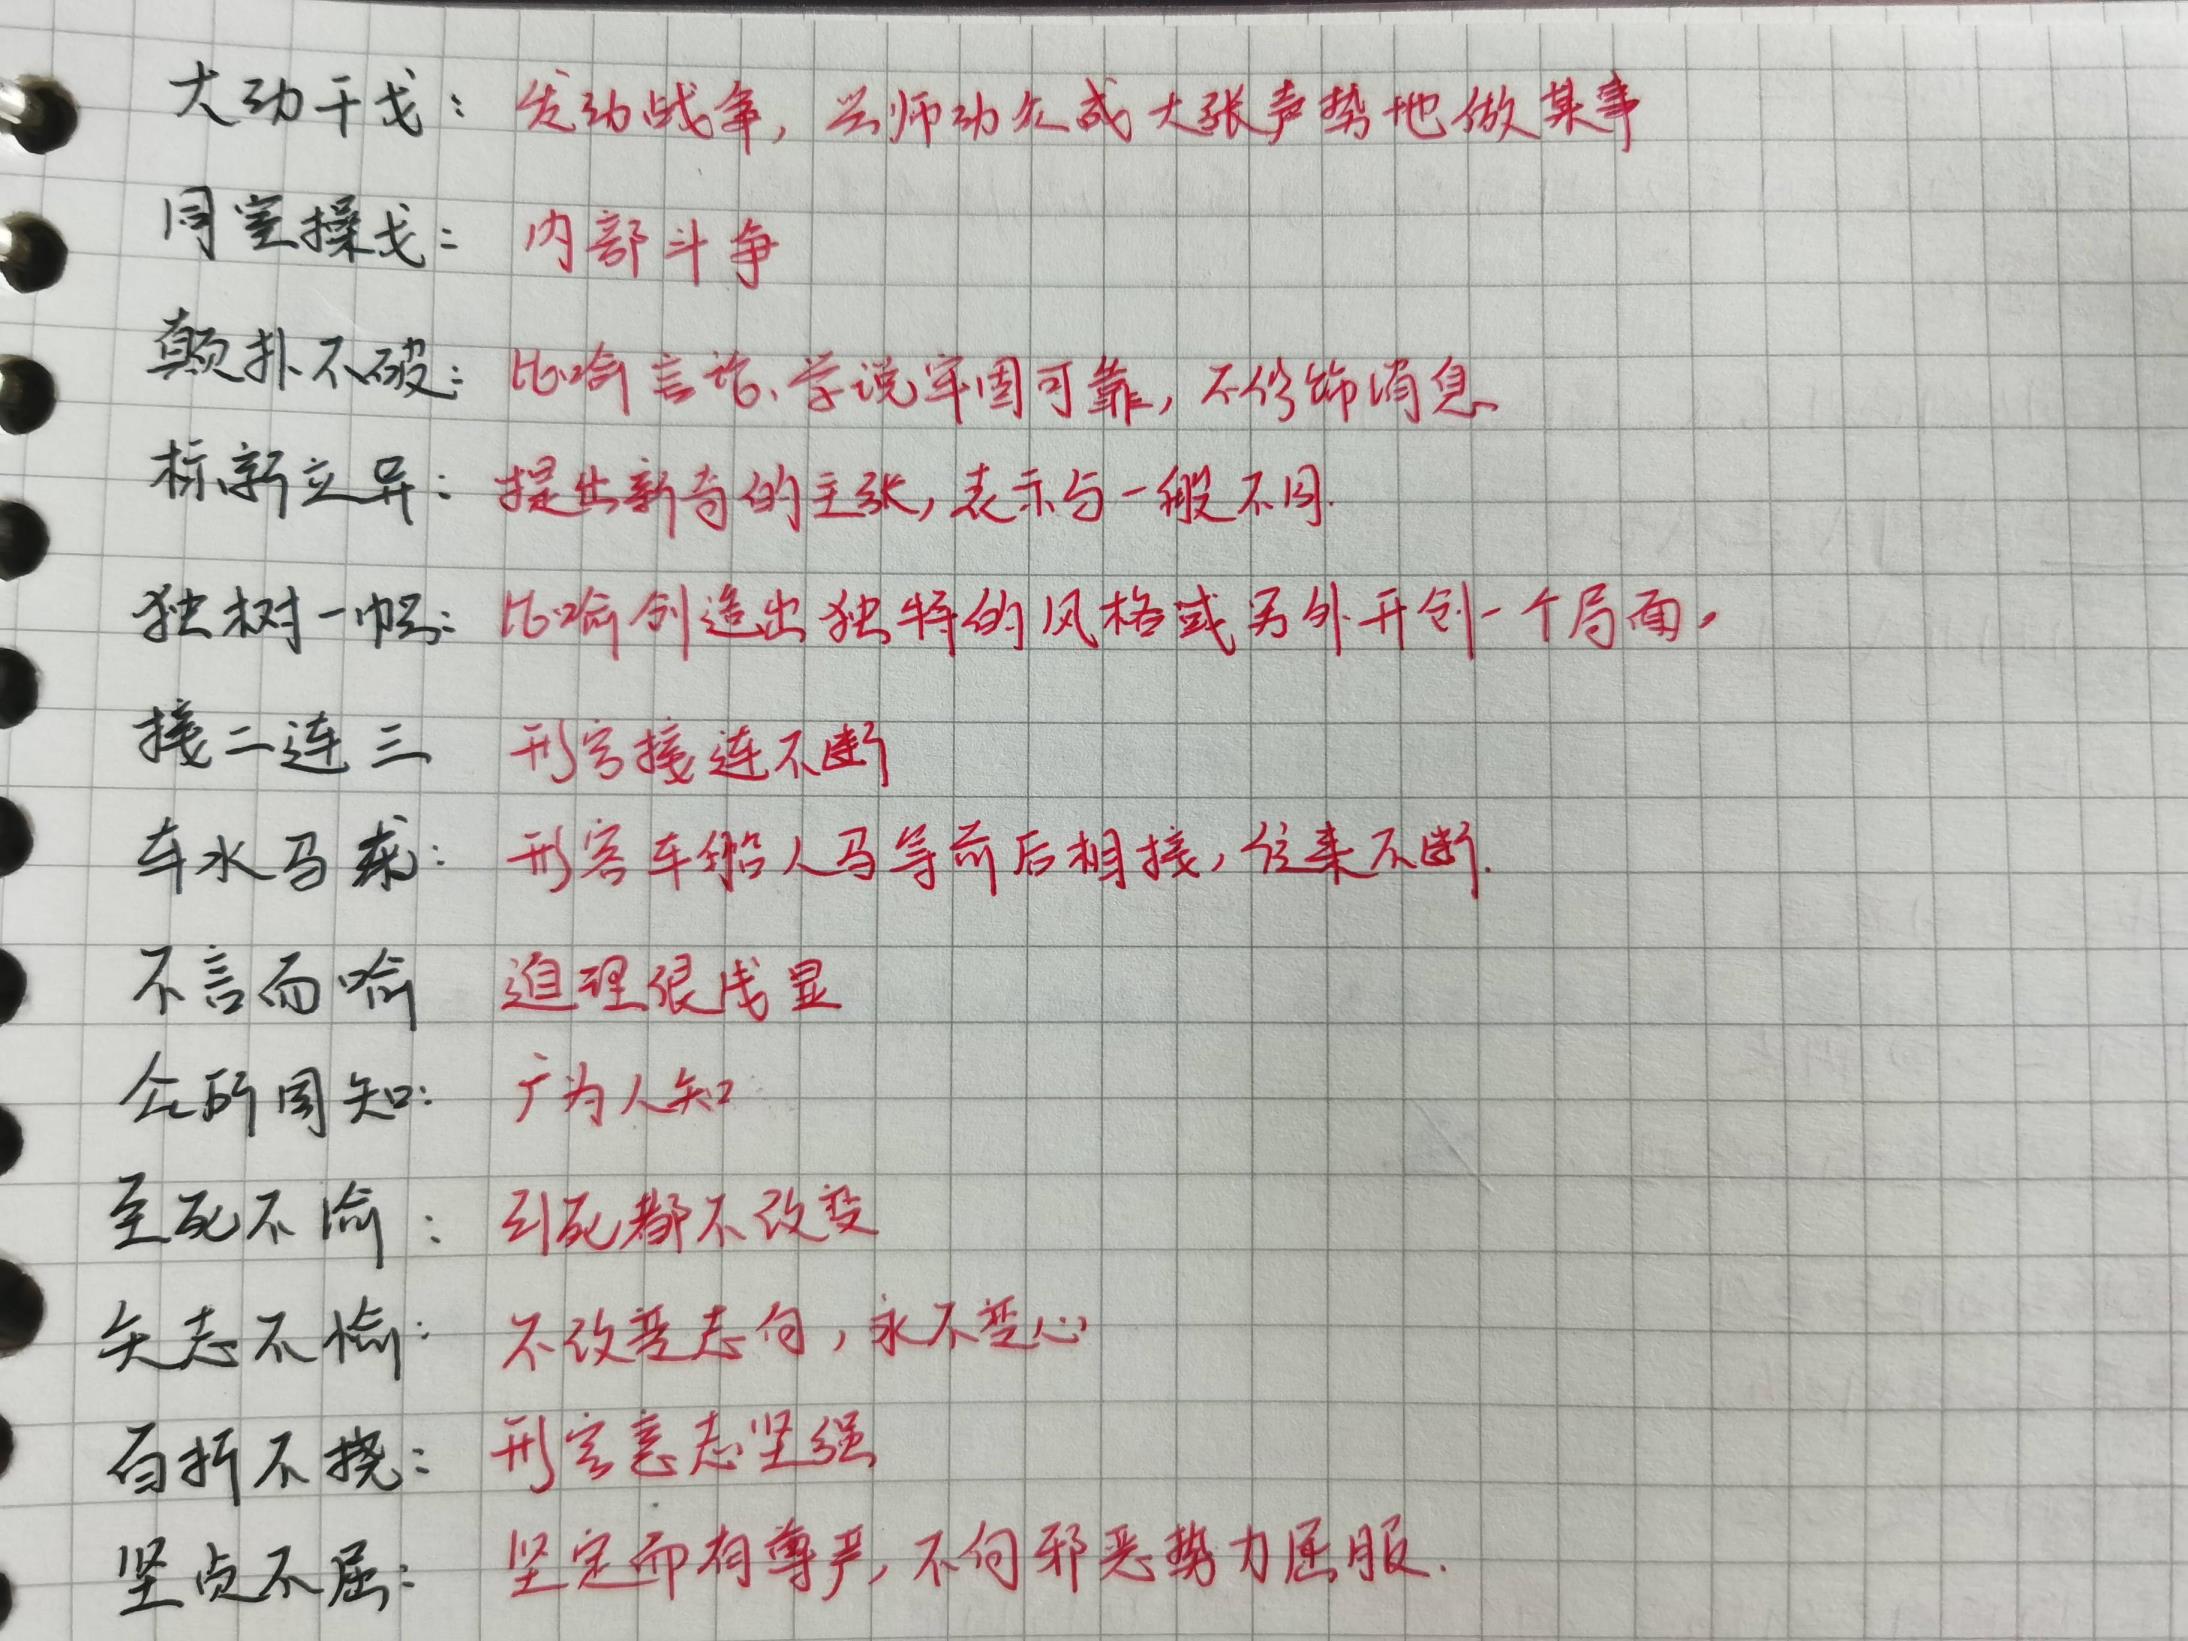 大动干戈：发动战争，兴师动众或大张声势地做某事
同室操戈：内部斗争
颠扑不破：比喻言话、学说牢固可靠，不修饰消息
标新立异：提出新奇的主张，表示与一般不同.
独树一帜：比喻创造出独特的风格或另外开创一个局面。
接二连三 形容接连不断
车水马龙：形容车船人马等前后相接，往来不断.
不言而喻 道理很浅显
众所周知：广为人知
至死不渝：到死都不改变
矢志不愉：不改变志向，永不变心
百折不挠：形容意志坚强
坚贞不屈：坚定而有尊严，不向邪恶势力屈服.